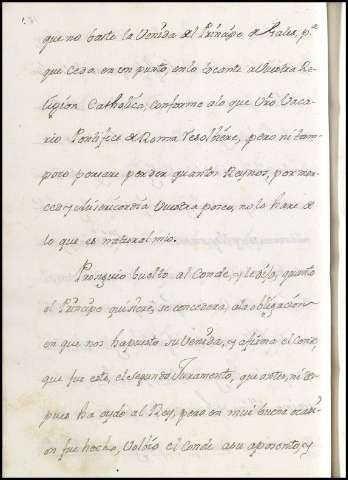 que no baste la Venida del Principe de Gales, pª
que Ceda en un punto, en lo tocante a Nuestra Re-
ligion Catholica, conforme a lo que Vro Vica-
rio Pontifice de Roma resolbiere, pero ni tam-
poco por que perder quantos Reynos, por mer-
ced y Misericordia Vuestra poseo, no lo hare de
lo que es natural mio.
Prosiguio buelto al Conde, y le dijo, quanto
el Principe quisiere, se concedera, a la obligacion
en que nos ha puesto su Venida, y afirma el Conde,
que fue este, el segundo Juramento, que antes, ni des-
pues ha oydo al Rey, pero en mui buena ocasi-
on fue hecho, Volvio el Conde a su aposento, y